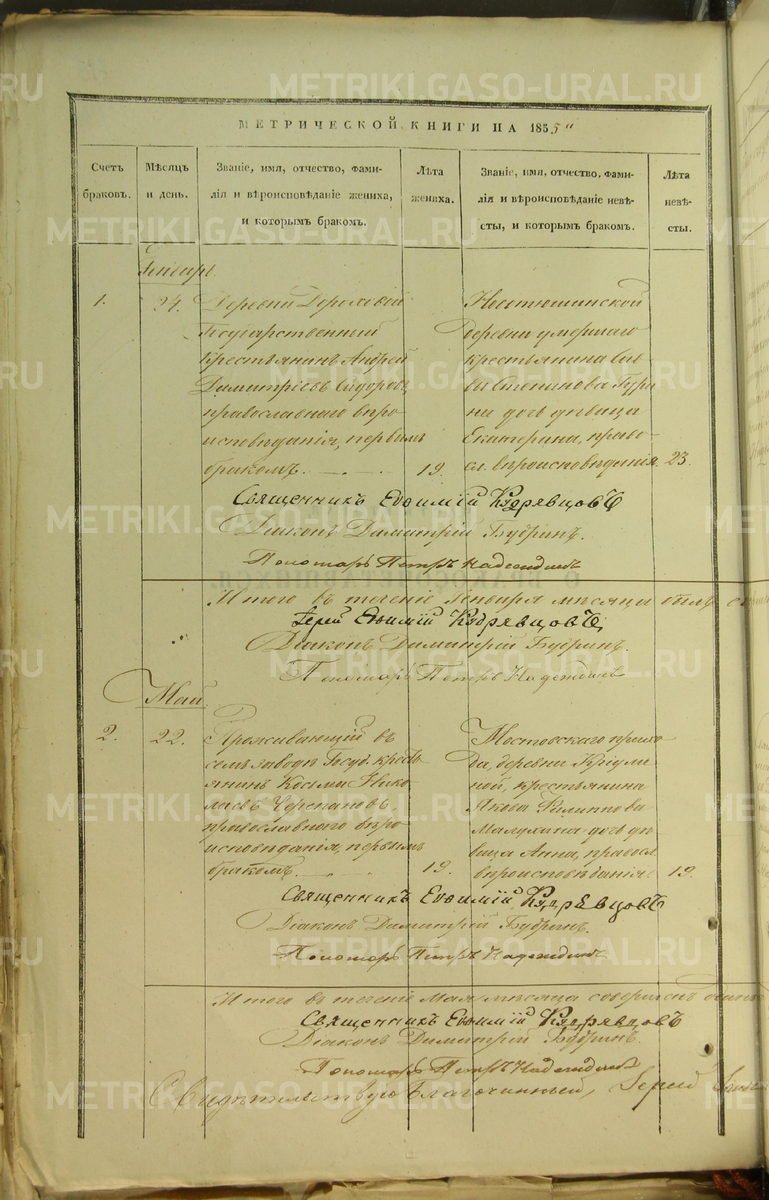 МЕТРИЧЕСКОЙ КНИГИ НА 1855 й
Счетъ браковъ.
Мѣсяцъ и день.
Званіе, имя, отчество, фами-
лія и вѣроисповѣданіе жениха,
и которымъ бракомъ.
Лѣта
жениха.
Званіе, имя, отчество, фами-
лія и вѣроисповѣданіе невѣ-
сты, и которымъ бракомъ.
Лѣта
невѣ-
сты.
Генварь.
1.
24.
Деревни
Государственный
Крестьянинъ Андрей
Димитріевъ Сидоровъ,
православнаго вѣро
исповѣданія, первымъ
бракомъ.
19.
деревни умершаго
крестьянина
дочь дѣвица
Екатерина, право-
сл. вѣроисповѣданія.
23.
Священникъ Евѳимій Кудрявцовъ
Діаконъ Димитрій Будринъ.
Пономарь Петръ Надеждинъ
Итого въ теченіе Генваря мѣсяца былъ
Іерей Евѳимій Кудрявцовъ,
Діаконъ Димитрій Будринъ.
Пономарь Петръ Надеждинъ
Май.
2.
22.
Проживающій въ
семъ заводѣ Госуд. кресть
янинъ Косьма Нико
лаевъ Черепановъ,
православнаго вѣро
исповѣданія, первымъ
бракомъ.
19.
Мостовскаго прихо
да, деревни
крестьянина
Якова Филиппова
Малухина дочь дѣ
вица Анна, правосл.
вѣроисповѣданія
19.
Священникъ Евѳимій Кудрявцовъ
Діаконъ Димитрій Будринъ.
Пономарь Петръ Надеждинъ
Итого въ теченіе Мая мѣсяца совершенъ
Священникъ Евѳимій Кудрявцовъ
Діаконъ Димитрій Будринъ.
Пономарь Петръ Надеждинъ
Свидѣтельствую Благочинный, Іерей
METRIKI.GASO-URAL.RU